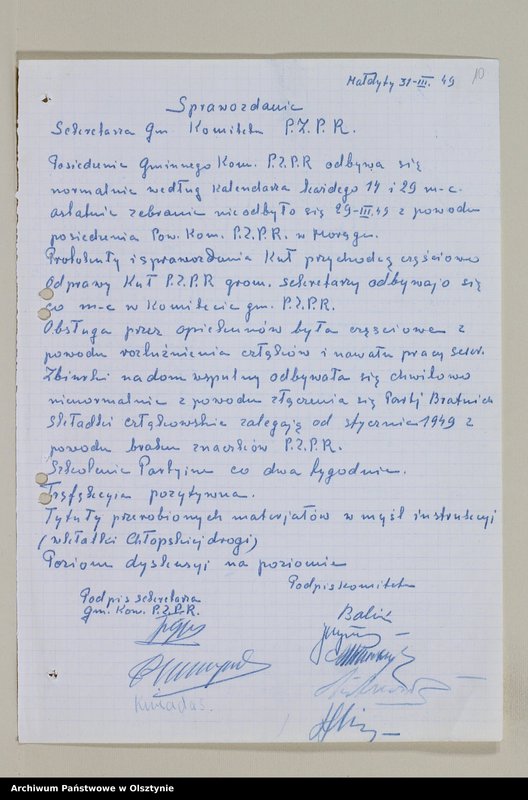 Małdyty 31-III. 49
10
Sprawozdanie
Sekretarza Gm. Komitetu P.Z.P.R.
Posiedzenie Gminnego Kom. P.Z.P.R odbywa się
normalnie według kalendarza każdego 14 i 29 m-c.
ostatnie zebranie nieodbyło się 29-III.49 z powodu
posiedzenia Pow. Kom. P.Z.P.R. w Morągu.
Protokuły i sprawozdania Kuł przychodzą częściowo
Odprawy Kuł P.Z.P.R grom. sekretarzy odbywają się
co m-c w Komitecie gm. P.Z.P.R.
Obsługa przez opiekunów była częściowa z
powodu rozluźnienia członków i nawału pracy
Zbiurki na dom wspulny odbywała się chwilowo
nienormalnie z powodu złączenia się Partj Bratnich
składki członkowskie zalegają od stycznia 1949 z
powodu braku znaczków P.Z.P.R.
Szkolenie Partyjne co dwa tygodnie.
pozytywna.
Tytuły przerobionych materjałów w myśl instrukcyj
(wkładki Chłopskiej drogi)
Poziom dyskusyi na poziomie
Podpis komitetu
Podpis sekretarza
gm. Kom. P.Z.P.R.